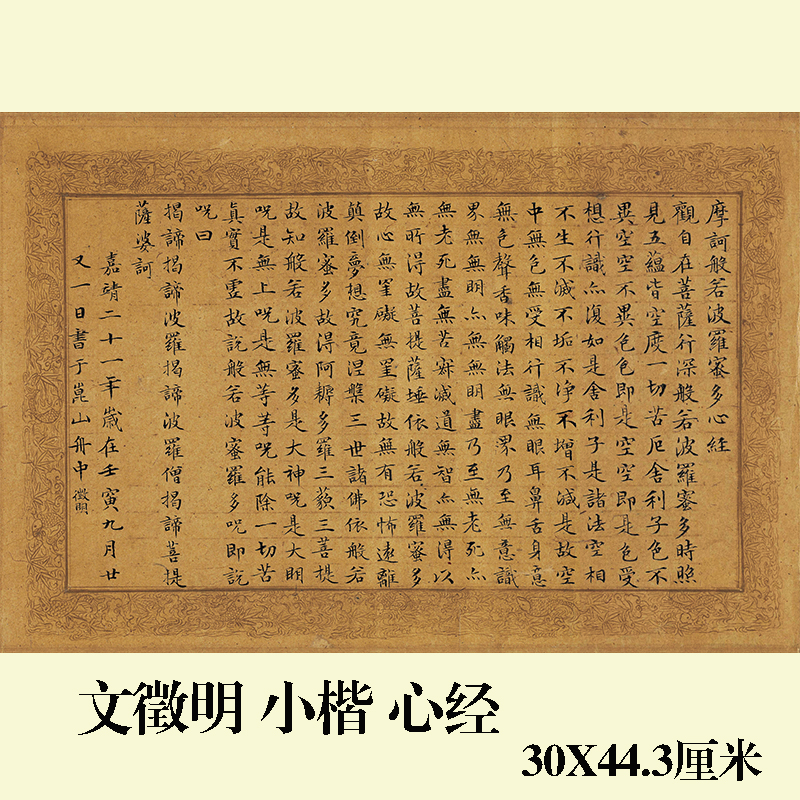 摩訶般若波羅蜜多心経
觀自在菩薩行深般若波羅蜜多時照
見五蘊皆空度一切苦厄舍利子色不
異空空不異色色即是空空即是色受
想行識亦復如是舍利子是諸法空相
不生不滅不垢不淨不增不減是故空
中無色無受相行識無眼耳鼻舌身意
無色聲香味觸法無眼界乃至無意識
界無無明亦無無明盡乃至無老死亦
無老死盡無苦寂滅道無智亦無得以
無所得故菩提薩埵依般若波羅蜜多
故心無罣礙無罣礙故無有恐怖遠離
顛倒夢想究竟涅槃三世諸佛依般若
波羅蜜多故得阿耨多羅三藐三菩提
故知般若波羅蜜多是大神呪是大明
呪是無上呪是無等等呪能除一切苦
真實不虛故說般若波蜜羅多呪即說
呪曰
揭諦揭諦波羅揭諦波羅僧揭諦菩提
薩婆訶
嘉靖二十一年歲在壬寅九月廿
又一日書于崑山舟中 徵明
文徵明 小楷 心经
30X44.3厘米